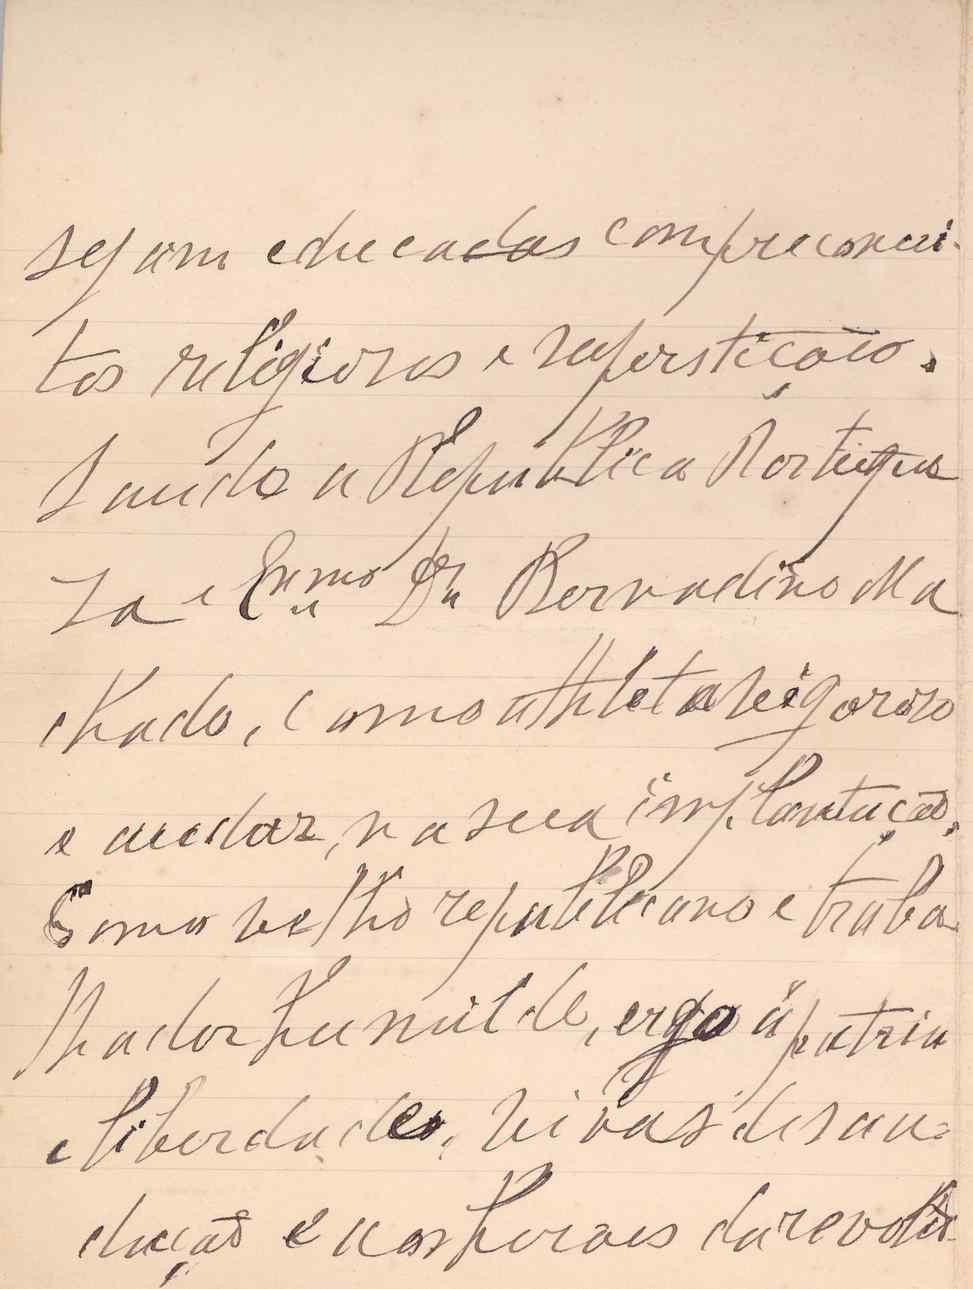 sejam educadas com preconcei-
tos religiosos e superstição.
Saudo a Républica Portugue
za e Exmo Dr Bernadino Ma
chado, como athleta vigoroso
e audaz, na sua implantação,
Como velho republicano e traba
lhador humilde, ergo á patria
e liberdade, vivas de sau=
dação e aos heroes da revolu-